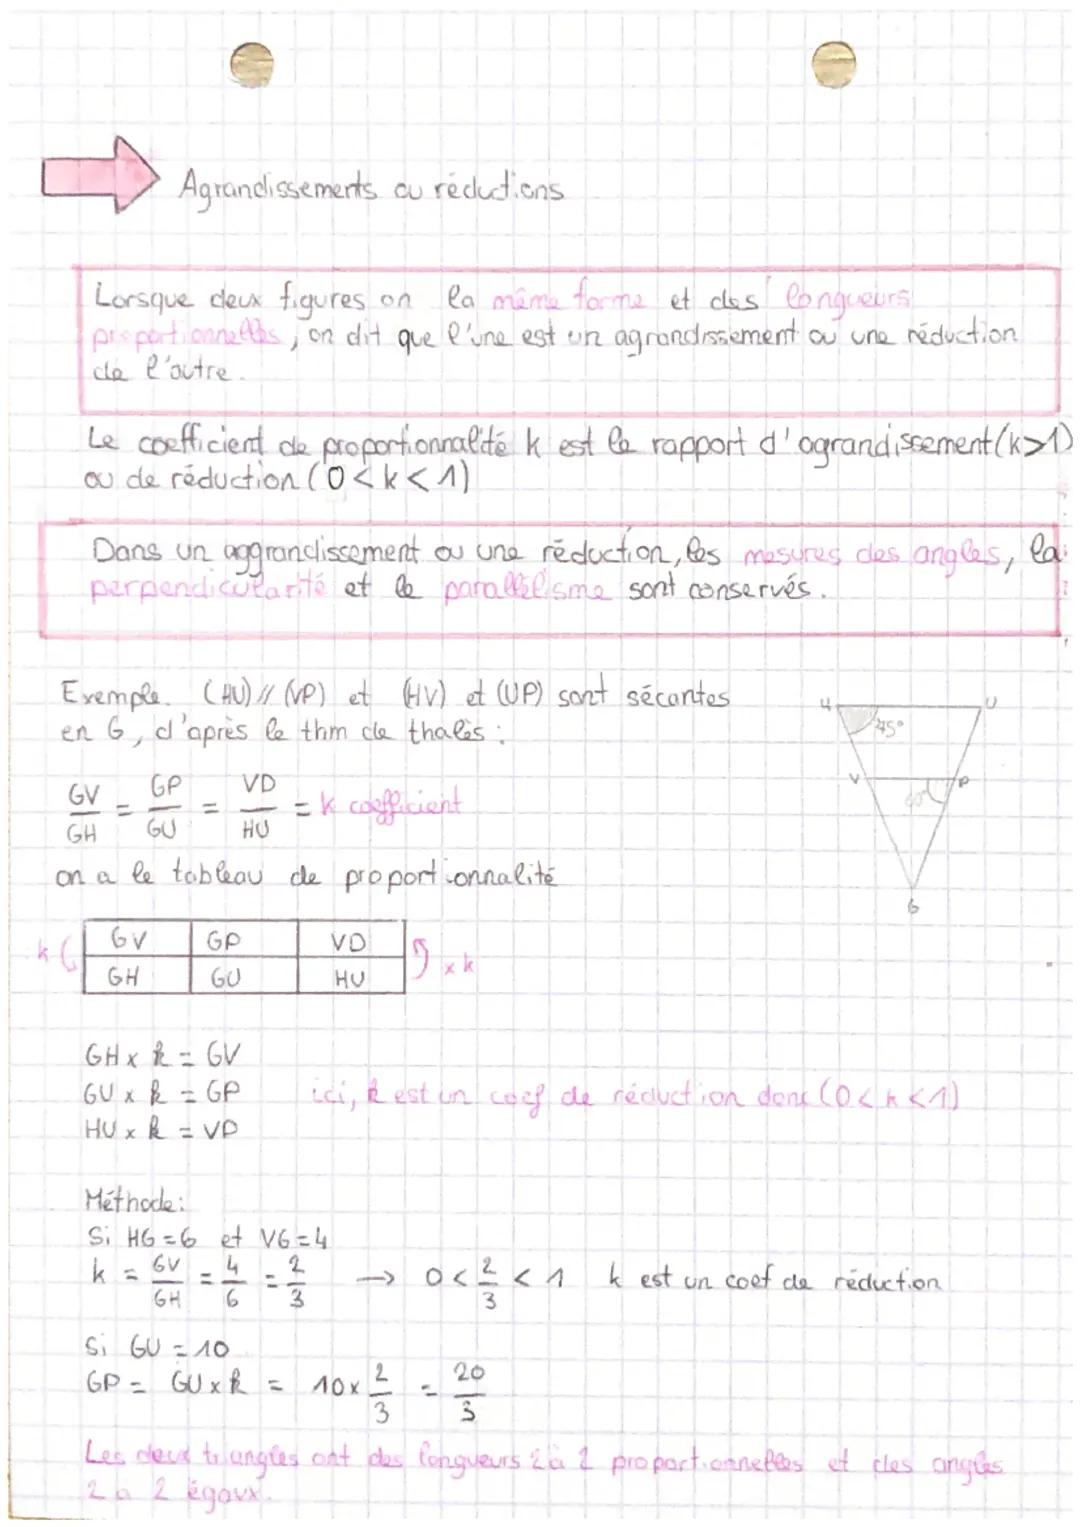 Agrandissements ou réductions
Lorsque deux figures on la même forme et des longueurs
proportionnelles, on dit que l'une est un agrandissement ou une réduction
de l'autre.
Le coefficient de proportionnalité k est le rapport d'agrandissement (k>1)
ou de réduction (0<k<1)
Dans un aggrandissement ou une réduction, les mesures des angles, la
perpendicularité et le parallélisme sont conservés.
Exemple. (HU) // (VP) et (HV) et (UP) sont sécantes
en G, d'après le thm de thalès :
GV/GH = GP/GU = VP/HU = k coefficient
H U
45°
V P
G
on a le tableau de proportionnalité
k GV GP VP × k
GH GU HU
GH × k = GV
GU × k = GP ici, k est un coef de réduction donc (0<k<1)
HU × k = VP
Méthode :
Si HG = 6 et VG = 4
k = GV/GH = 4/6 = 2/3 → 0 < 2/3 < 1 k est un coef de réduction
Si GU = 10
GP = GU × k = 10 × 2/3 = 20/3
Les deux triangles ont des longueurs 2 à 2 proportionnelles et des angles
2 a 2 égaux.